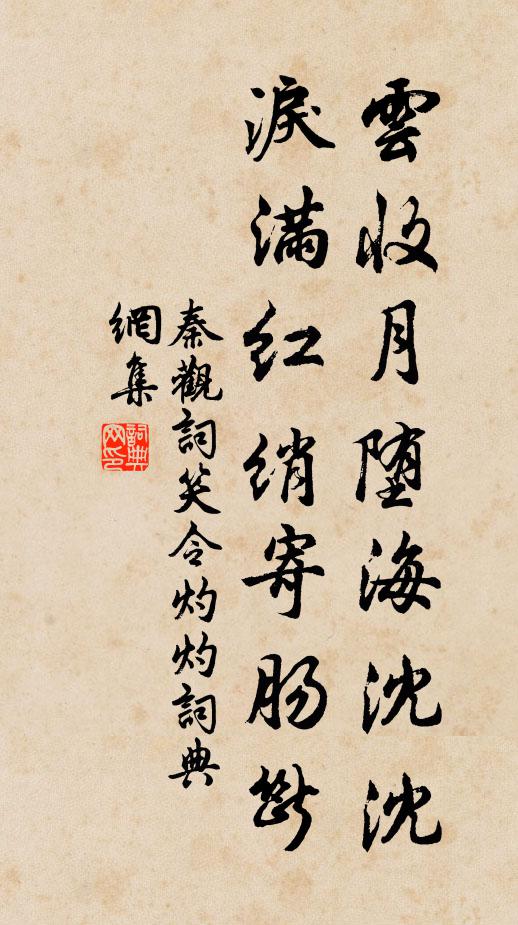 雲收月堕海沈沈
淚滿红绡寄肠斷
秦觀詞笑令灼灼詞典
網集
詞典網印